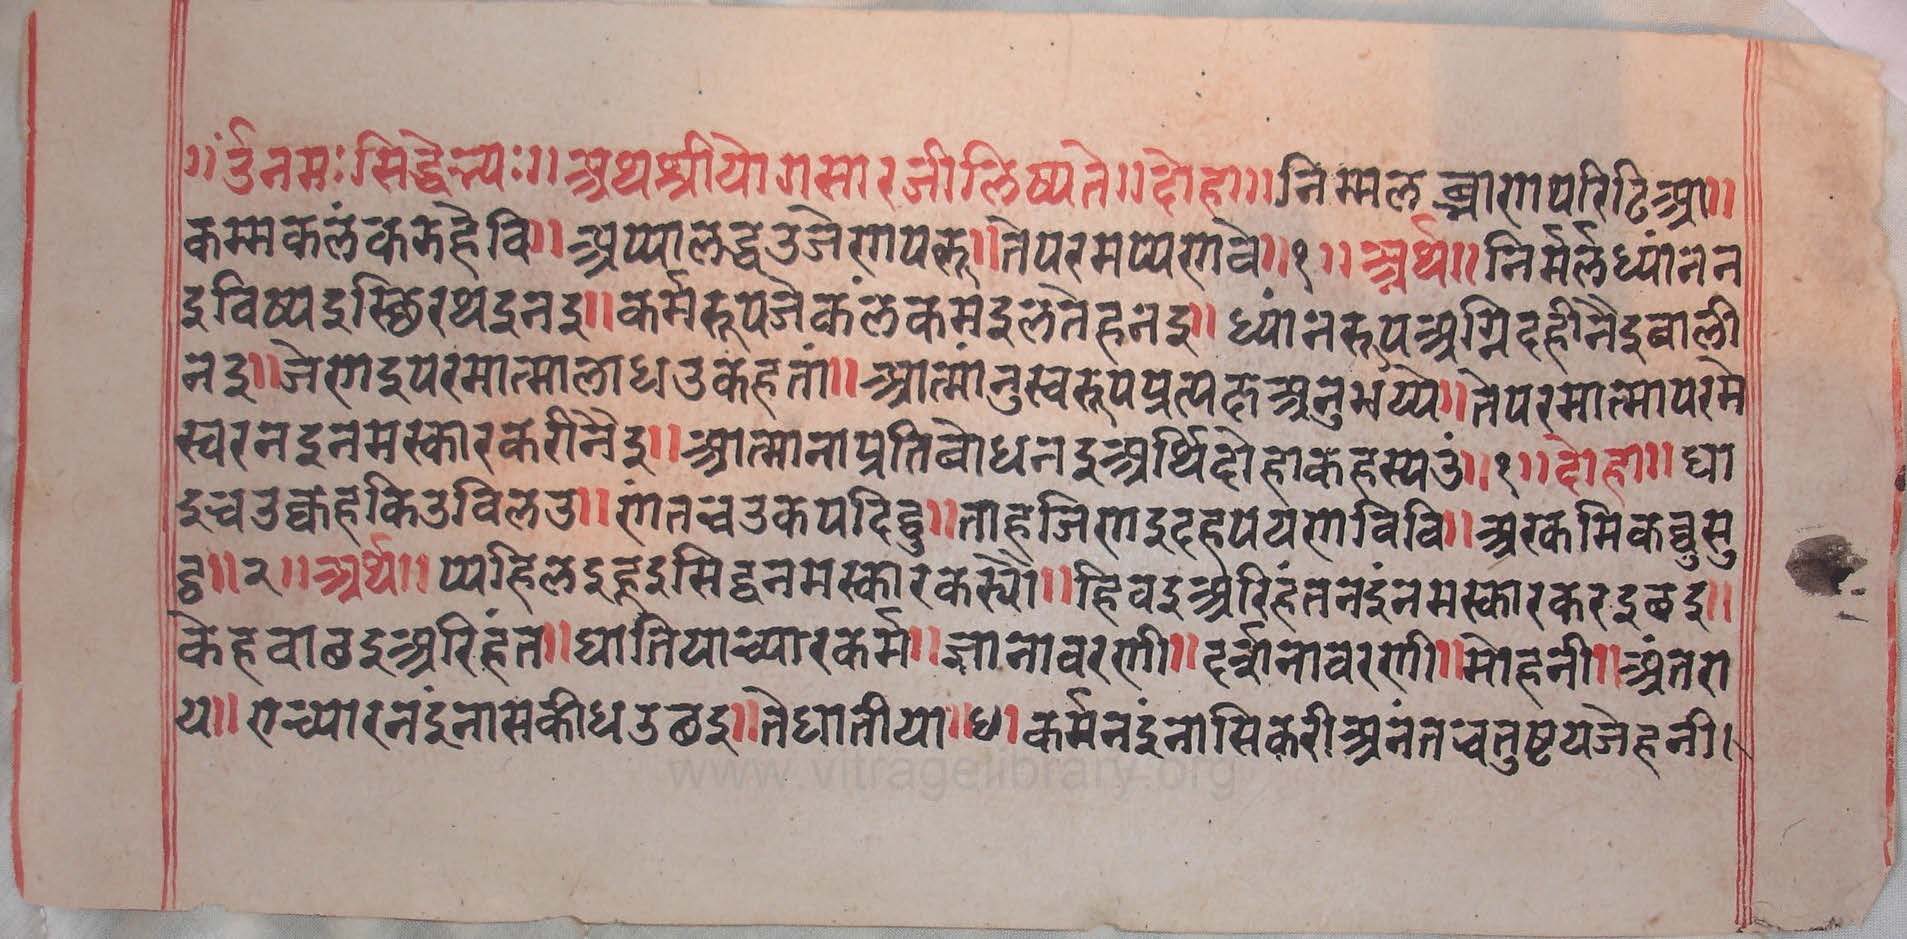 ॥ उं नमः सिद्धेभ्यः ॥ अथ श्री योगसार जी लिष्यते ॥ दोहा ॥ निम्मल झाण परिटिआ ॥
कम्म कलंक महेवि ॥ अप्पा लद्धउ जेण परु ॥ ते परमप्प णवे ॥ १ ॥ अर्थ ॥ निर्मल ध्यांन न
इ विष्यइ स्छिर थइनइ ॥ कर्म रूप जे कलंक मइल तेहनइ ॥ ध्यांन रूप अग्नि दहीनैइ बाली
नइ ॥ जेणइ परमात्मा लाधउ कहतां ॥ आत्मांनु स्वरूप प्रत्यक्ष अनुभव्ये ॥ ते परमात्मा परमे
स्वरनइ नमस्कार करीनैइ ॥ आत्माना प्रतिबोधनइ अर्थि दोहा कहस्यउं ॥ १ ॥ दोहा ॥ घा
इ चउक्कह किउ विलउ ॥ णंत चउक पदिट्ठु ॥ ताह जिणइदह पय णविवि ॥ अरकमि कव्वु सु
ट्ठ ॥ २ ॥ अर्थ ॥ प्पहिलइ हूइ सिद्ध नमस्कार कस्यौ ॥ हिवइ अरिहंतनइं नमस्कार करइ छइ ॥
केहवा छइ अरिहंत ॥ घातिया च्यार कर्म ॥ ज्ञानावरणी ॥ दर्शनावरणी ॥ मोहनी ॥ अंतरा
य ॥ ए च्यारनइं नास कीधउ छइ ॥ ते घातीया ॥ ४ । कर्मनइं नासि करी अनंत चतुष्टय जेहनी ।
www.vitragelibrary.org